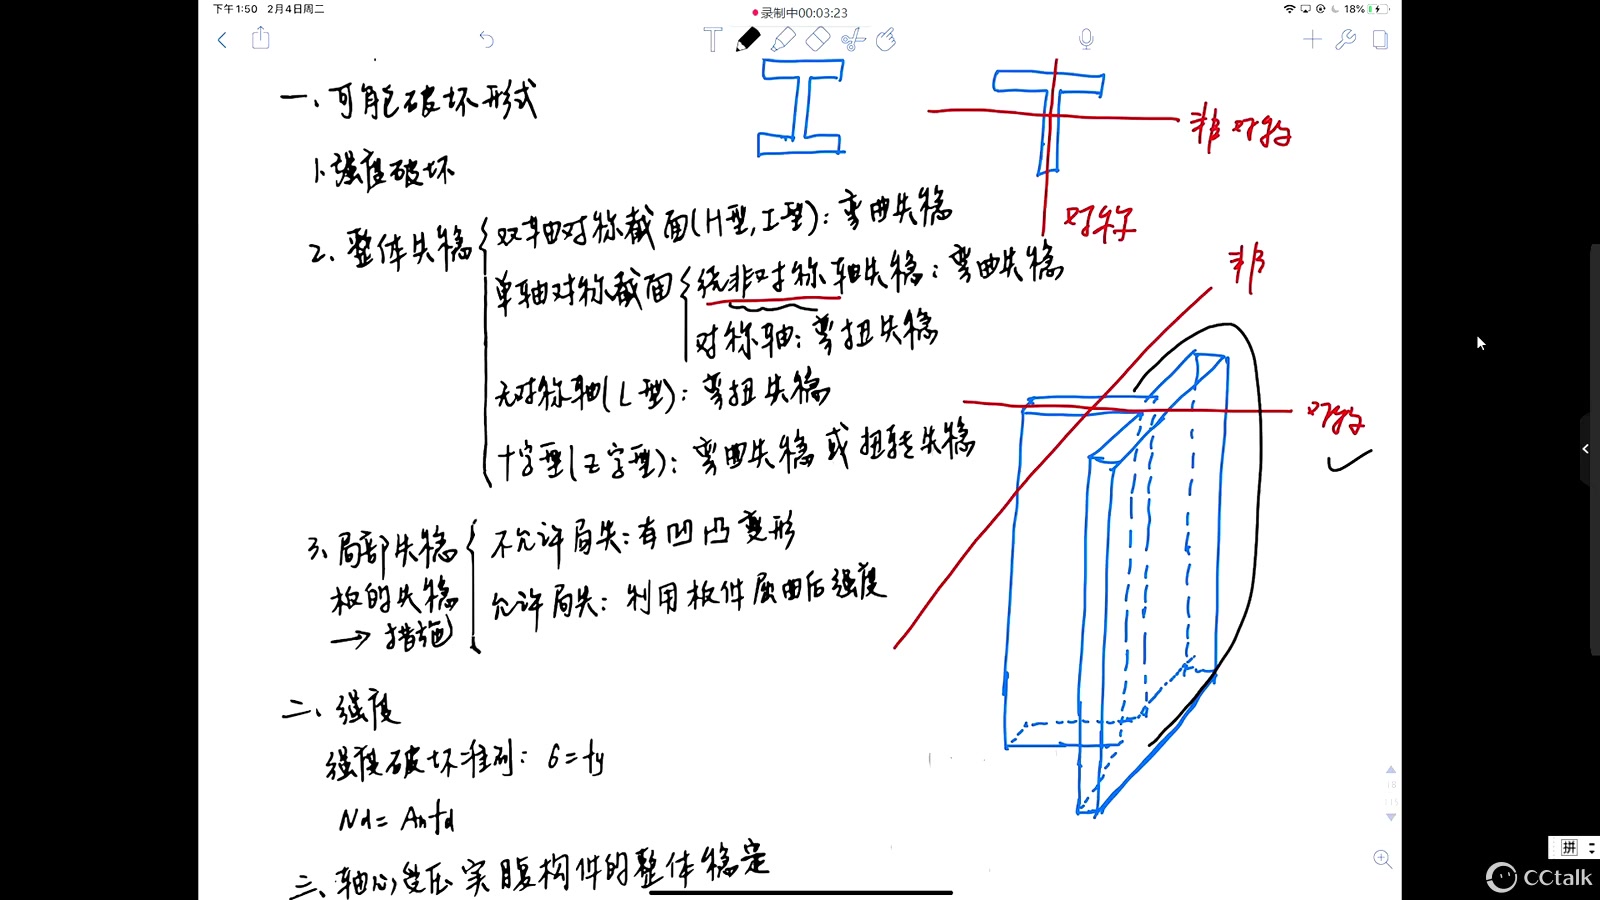 下午1:50 2月4日周二
录制中00:03:23
18%
一、可能破坏形式
1.强度破坏
非对称
对称
2、整体失稳
双轴对称截面(H型,工型):弯曲失稳
单轴对称截面
绕非对称轴失稳:弯曲失稳
对称轴:弯扭失稳
无对称轴(L型):弯扭失稳
十字型(Z字型):弯曲失稳或扭转失稳
非
对称
3、局部失稳
板的失稳
→措施
不允许局失:有凹凸变形
允许局失:利用板件屈曲后强度
二、强度
强度破坏准则:σ=fy
Nd=Anfd
三、轴心受压实腹构件的整体稳定
拼
CCtalk